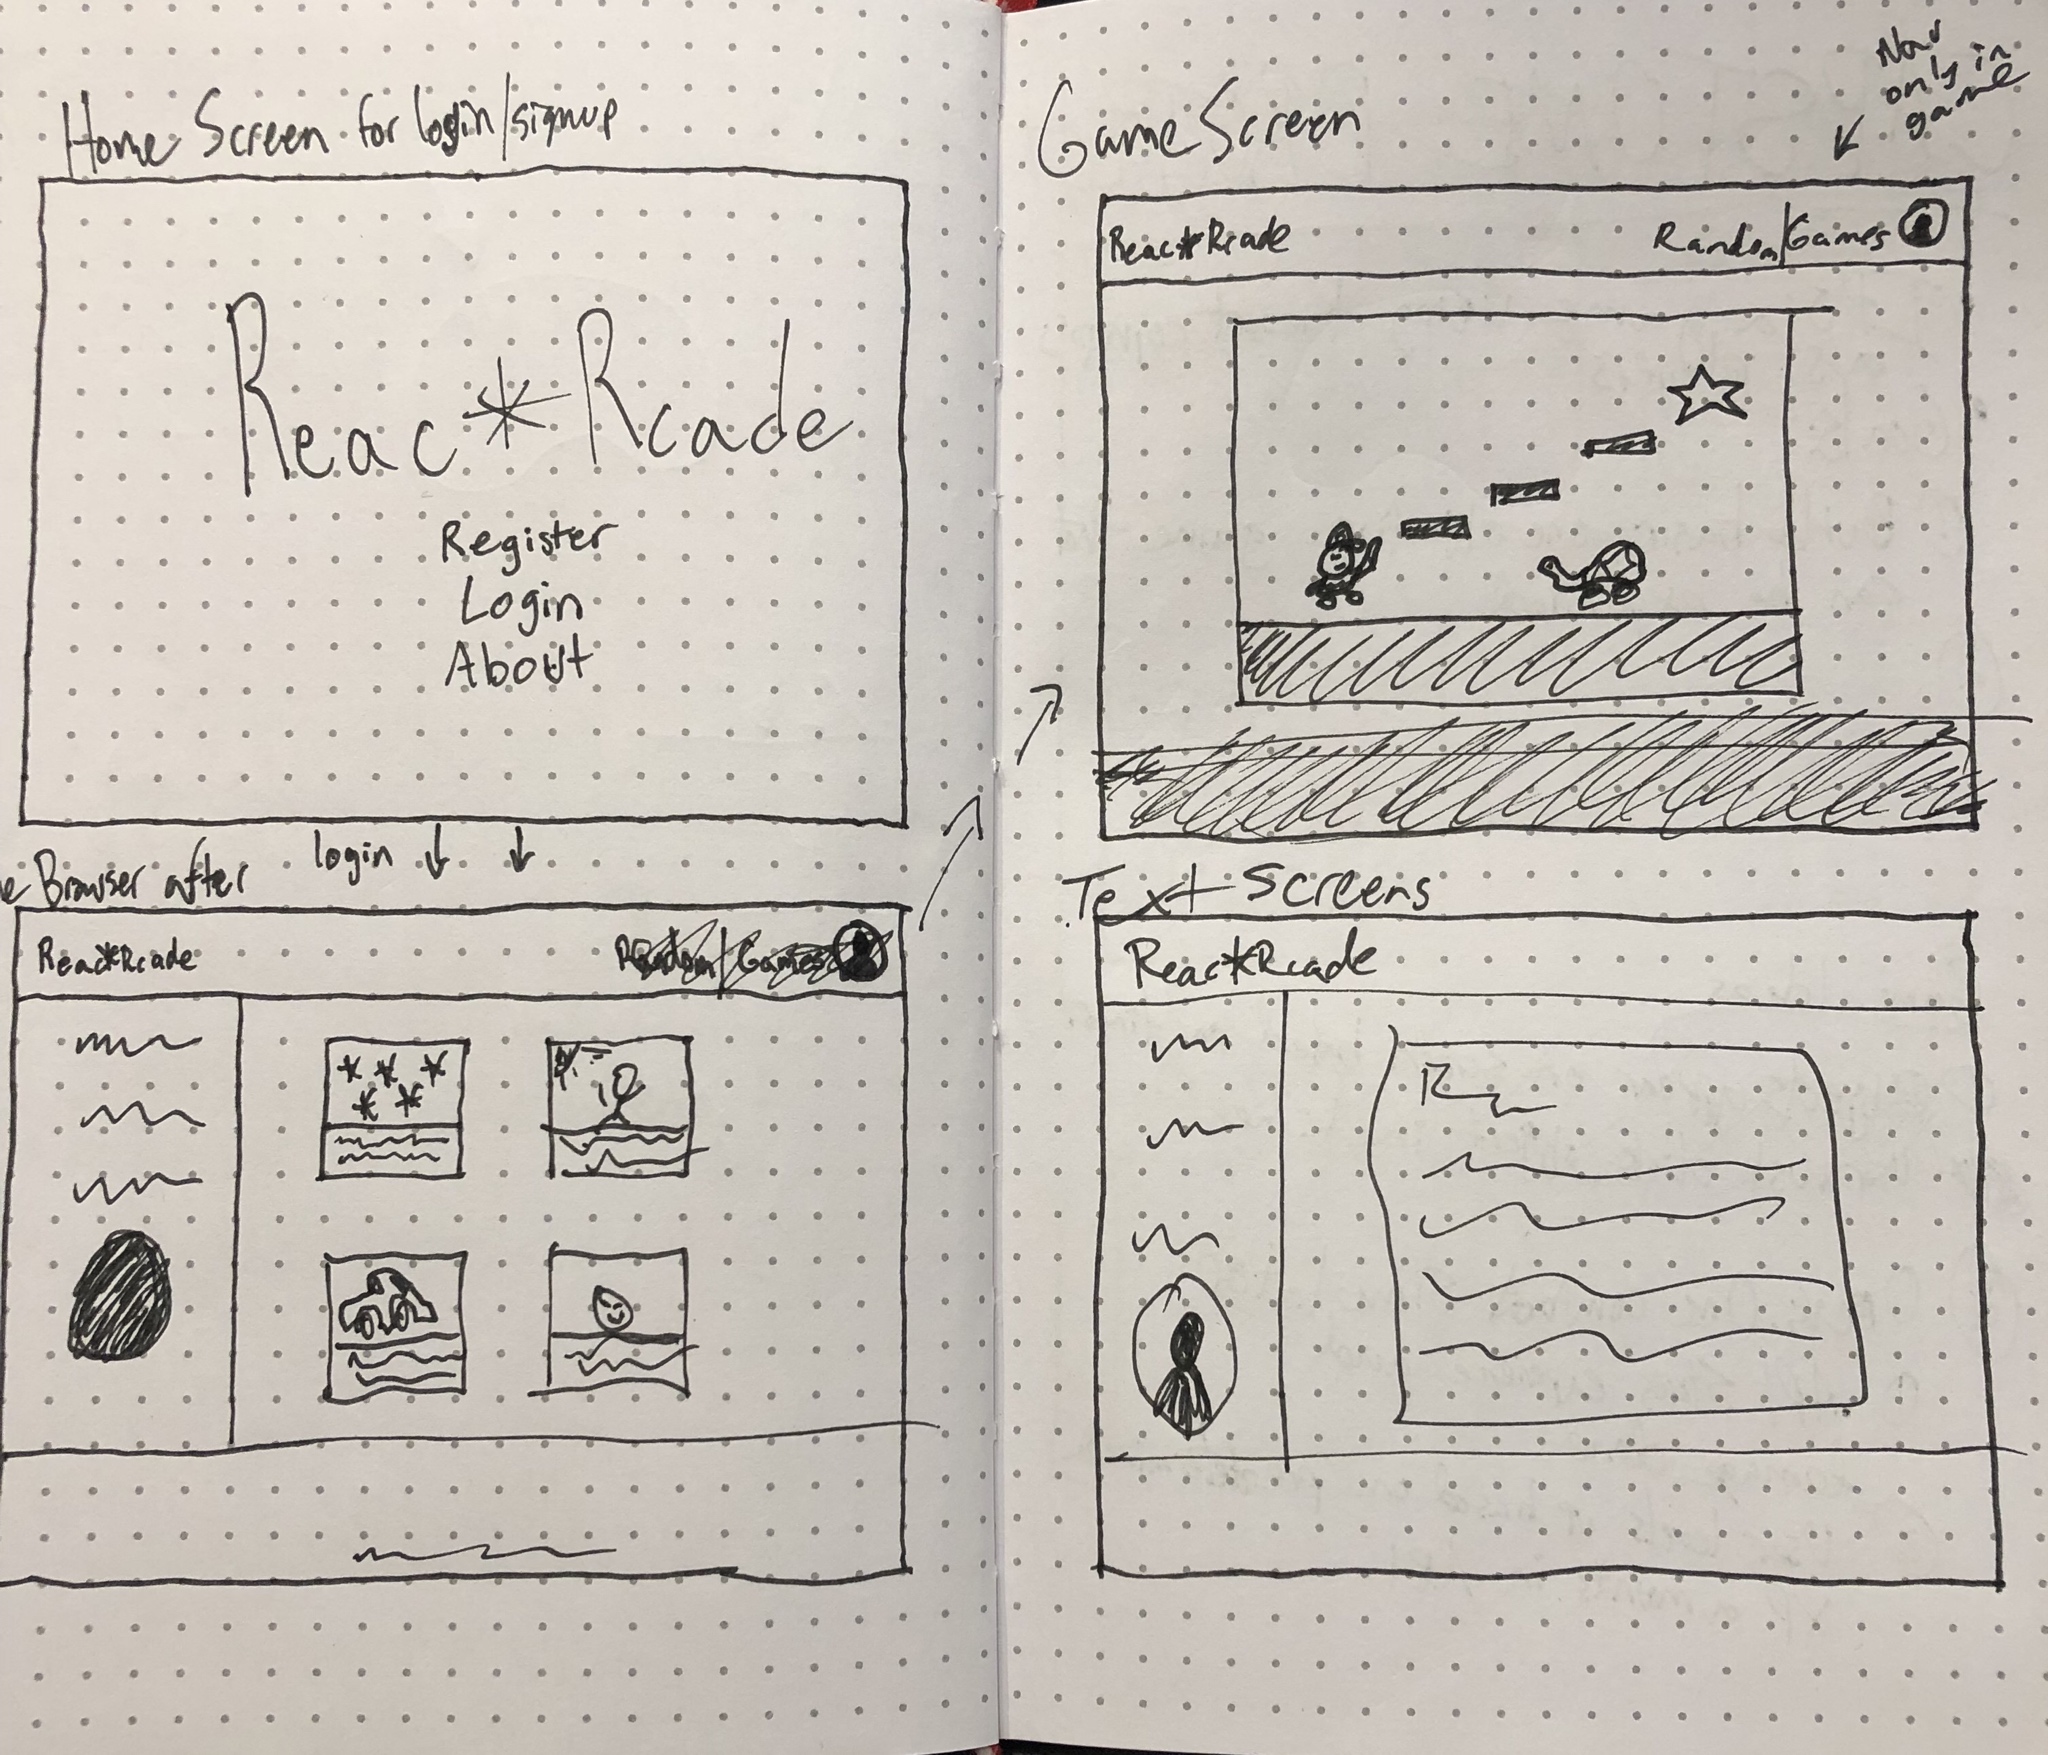 Home Screen for login/signup
Reac*Rcade
Register
Login
About
login
e Browser after
Reac*Rcade
Random/Games
Game Screen
Nav
only in
game
Reac*Rcade
Random/Games
Text Screens
Reac*Rcade